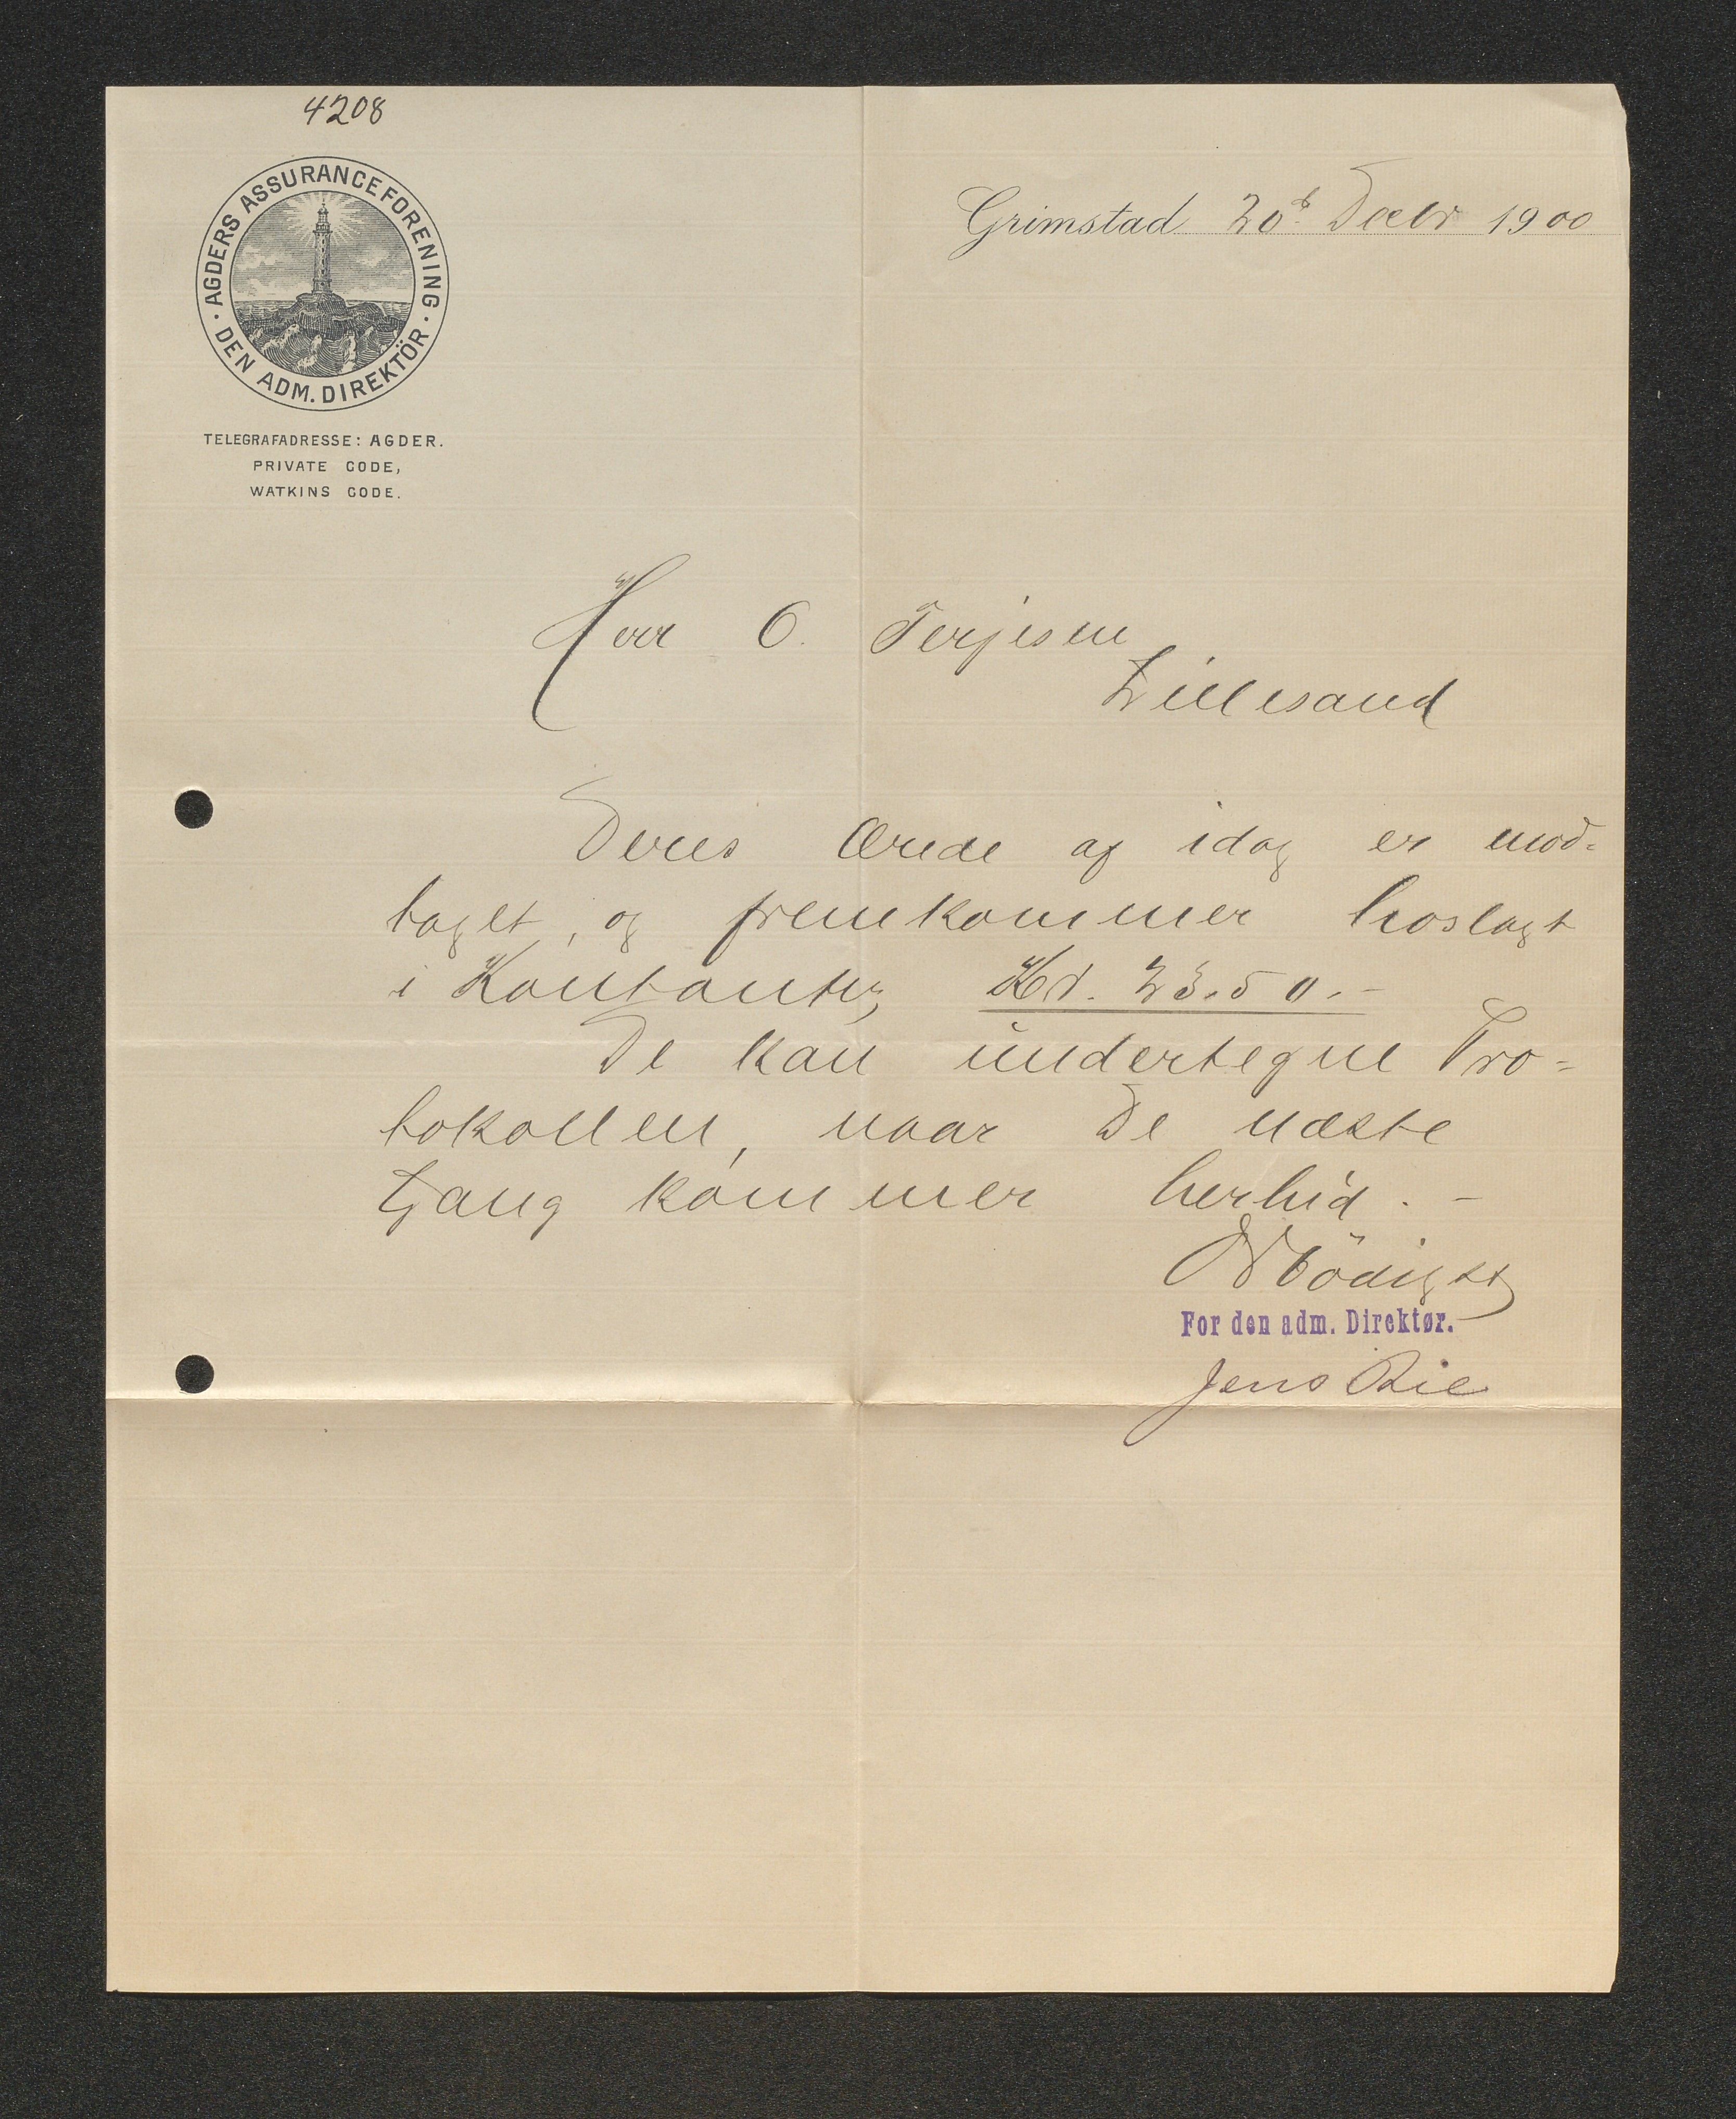 4208
AGDERS ASSURANCEFORENING
· DEN ADM. DIREKTÖR ·
TELEGRAFADRESSE: AGDER.
PRIVATE CODE,
WATKINS CODE.
Grimstad 20d Decbr 1900
Herr O. Terjesen
Lillesand
Deres Ærede af idag er mod=
taget, og fremkommer hoslagt
i Kontanter, Kr. 23.50.-
De kan undertegne Pro=
tokollen, naar De næste
Gang kommer herhid. -
Ærbödigst
For den adm. Direktør.
Jens Bie